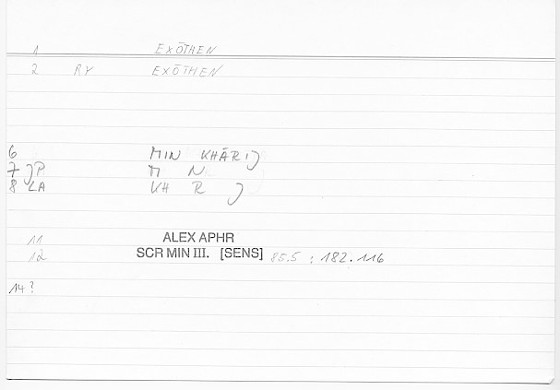 1 EXŌTHEN
2 RY EXŌTHEN
6 MIN KHĀRIJ
7 JP M N
8 LA KH R J
11 ALEX APHR
12 SCR MIN III. [SENS] 85.5 ; 182.116
14?